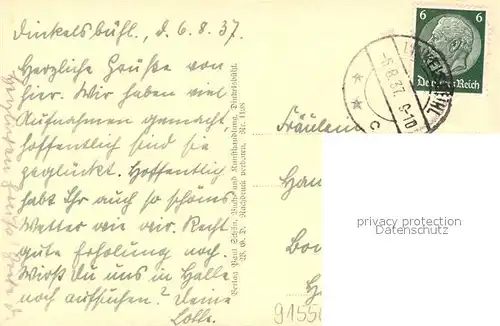 Dinkelsbühl, d. 6. 8. 37.
Herzliche Grüße von
hier. Wir haben viel
Aufnahmen gemacht,
hoffentlich sind sie
geglückt. Hoffentlich
habt Ihr auch so schönes
Wetter wie wir. Recht
gute Erholung noch.
Wirst du uns in Halle
noch aufsuchen? Deine
Lotte.
Verlag Paul Schön, Buch- und Kunsthandlung, Dinkelsbühl.
W. G. P. Nachdruck verboten. Nr. 1138
Fräulein
6
6
Deutsches Reich
-6.8.37. 9-10
c
privacy protection
Datenschutz
9155